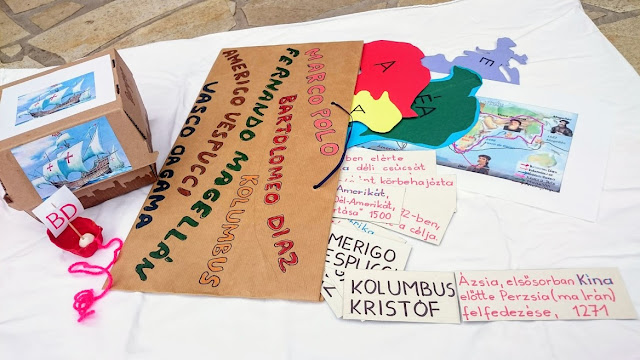 MARCO POLO
BARTOLOMEO DIAZ
FERNANDO MAGELLÁN
KOLUMBUS
AMERIGO VESPUCCI
VASCO DAGAMA
BD
A
E
A
ÉA
ben elérte
a déli csúcsát
int körbehajósta
Amerikát,
Dél-Amerikát,
rtása" 1500
2-ben,
a célja.
MERIGO
ESPUCC
KOLUMBUS
KRISTÓF
Ázsia, elsősorban Kína
előtte Perzsia (ma Irán)
felfedezése, 1271